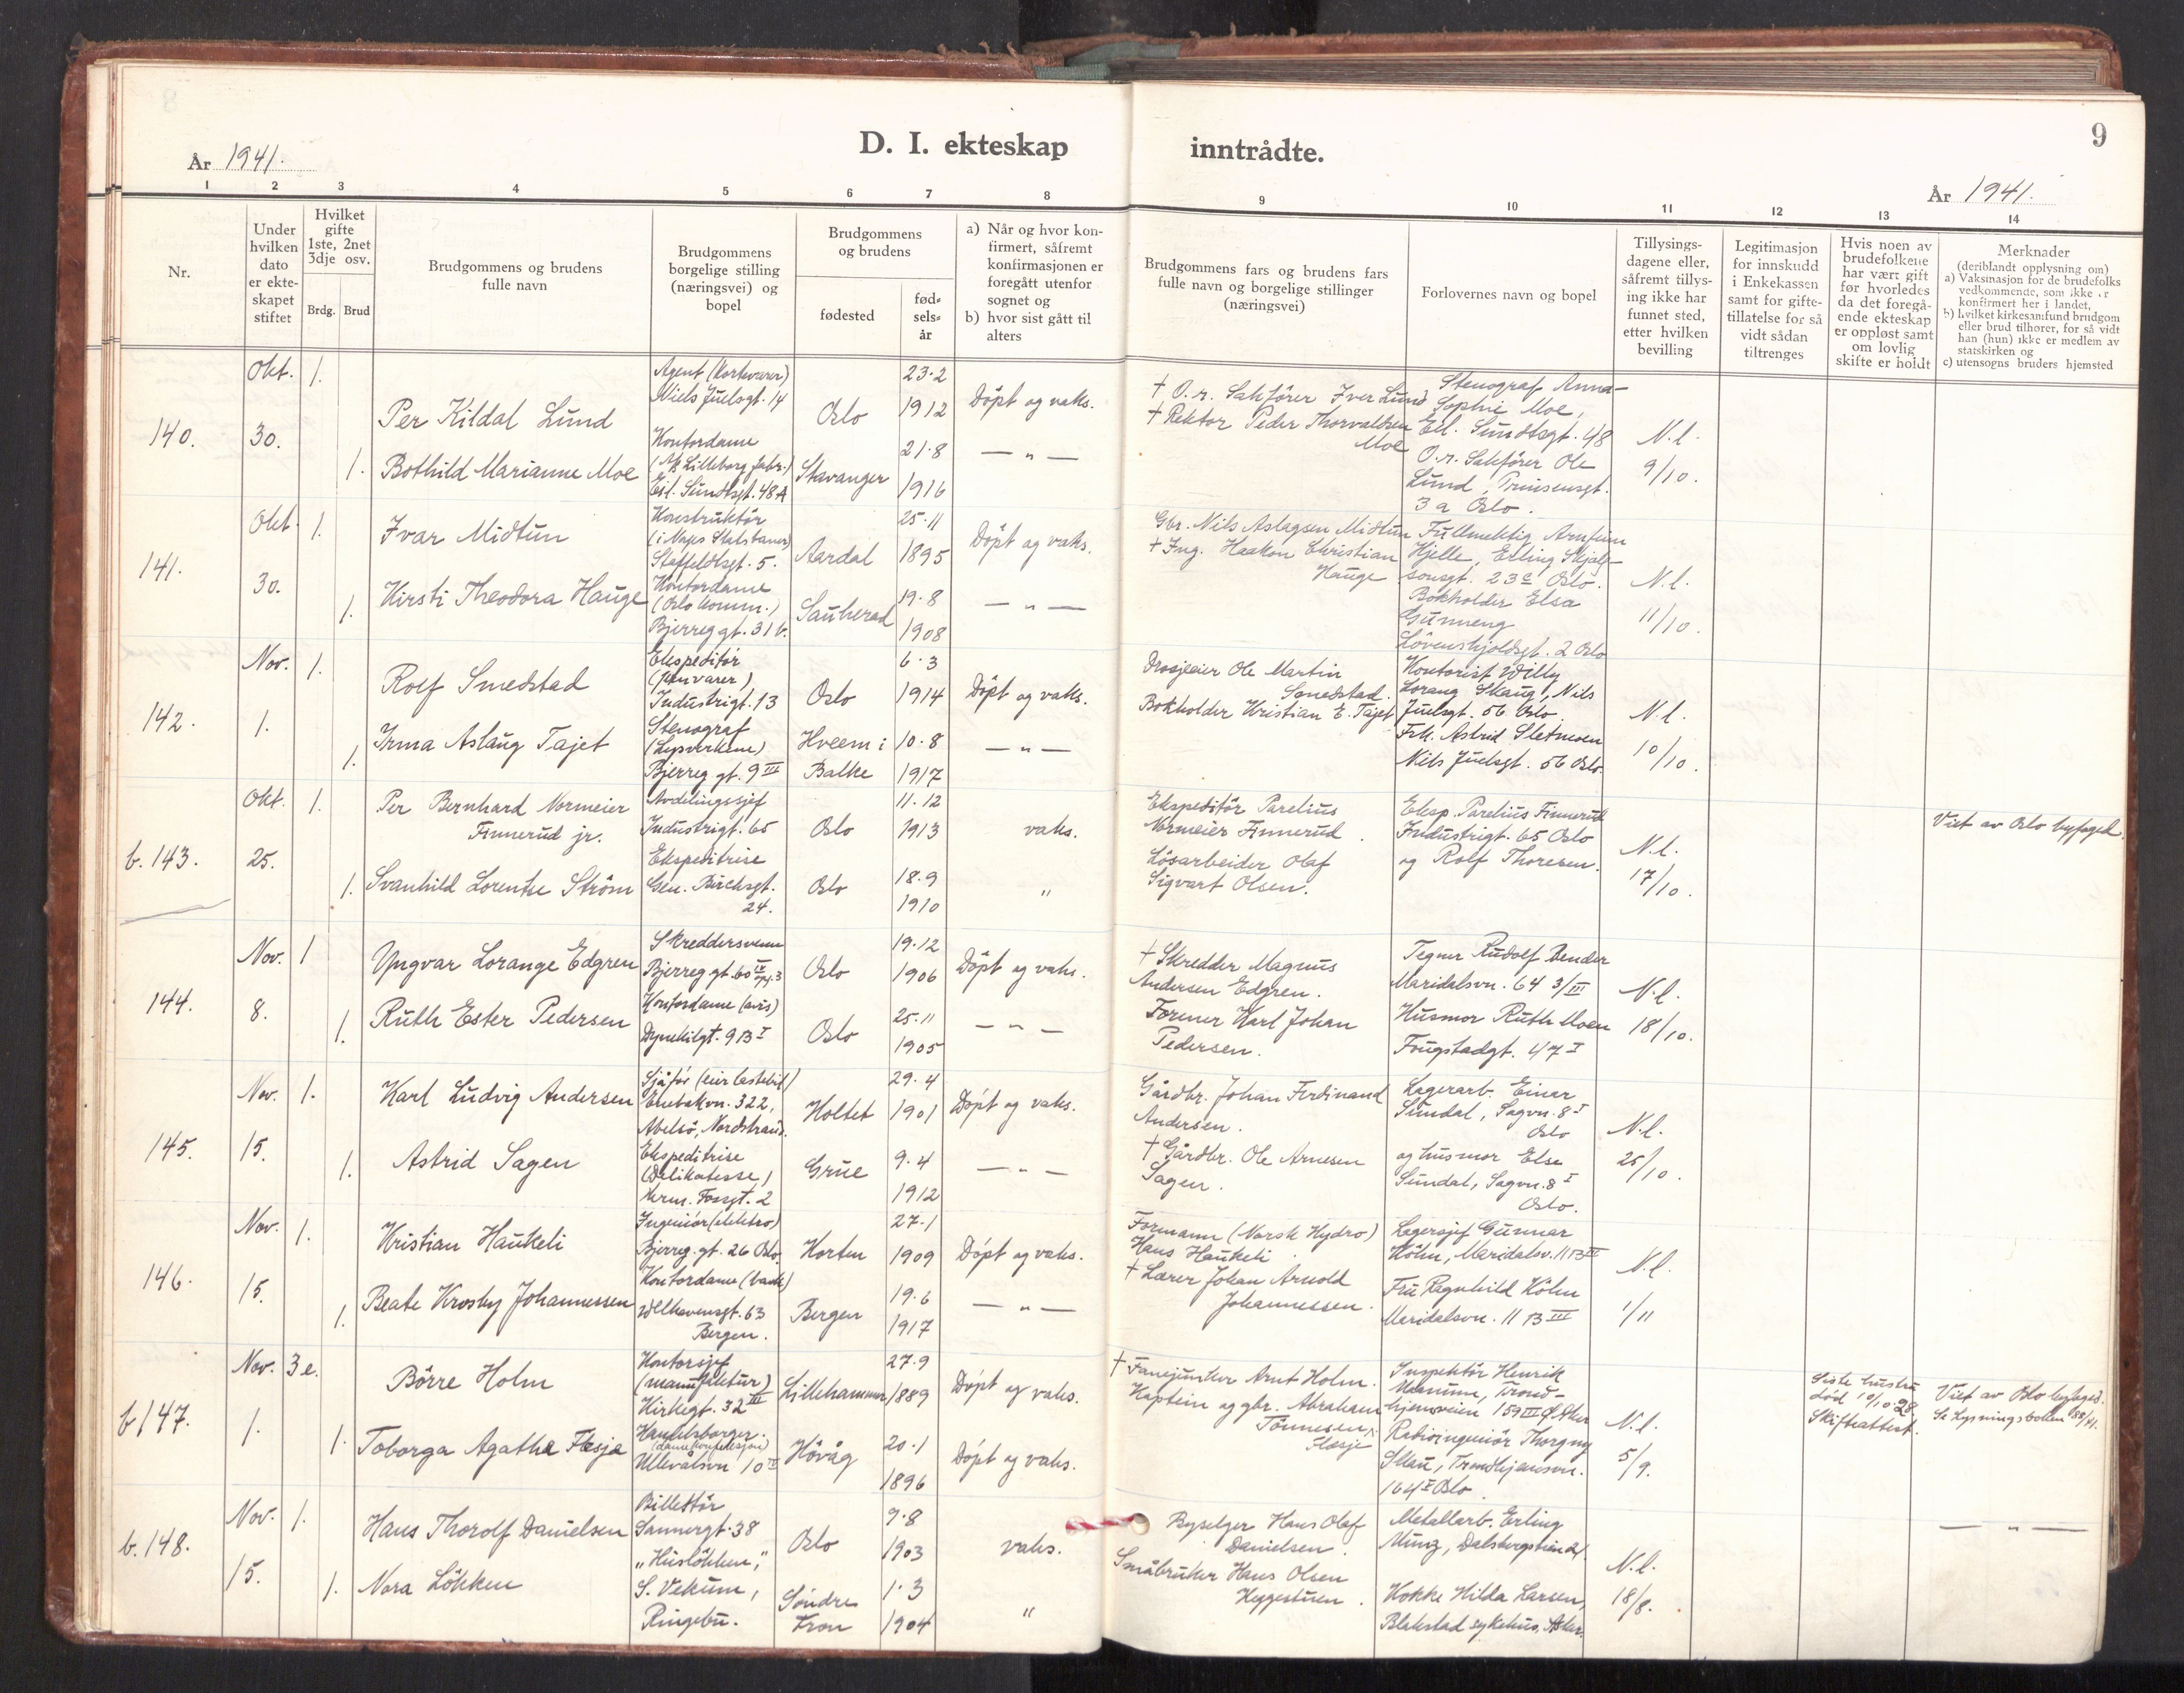 9
D. I. ekteskap inntrådte.
År 1941.
År 1941.
1 2 3 4 5 6 7 8 9 10 11 12 13 14
Nr.
Under hvilken dato er ekteskapet stiftet
Hvilket gifte 1ste, 2net 3dje osv.
Brdg. Brud
Brudgommens og brudens fulle navn
Brudgommens borgelige stilling (næringsvei) og bopel
Brudgommens og brudens
fødested
fødselsår
a) Når og hvor konfirmert, såfremt konfirmasjonen er foregått utenfor sognet og
b) hvor sist gått til alters
Brudgommens fars og brudens fars fulle navn og borgelige stillinger (næringsvei)
Forlovernes navn og bopel
Tillysingsdagene eller, såfremt tillysing ikke har funnet sted, etter hvilken bevilling
Legitimasjon for innskudd i Enkekassen samt for giftetillatelse for så vidt sådan tiltrenges
Hvis noen av brudefolkene har vært gift før hvorledes da det foregående ekteskap er oppløst samt om lovlig skifte er holdt
Merknader
(deriblandt opplysning om)
a) Vaksinasjon for de brudefolks vedkommende, som ikke er konfirmert her i landet,
b) hvilket kirkesamfund brudgom eller brud tilhører, for så vidt han (hun) ikke er medlem av statskirken og
c) utensogns bruders hjemsted
140.
Okt. 30.
1.
Per Kildal Lund
Agent (kortevarer)
Niels Juelsgt. 14
Oslo
23·2
1912
Döpt og vaks.
† O.r. Sakförer Iver Lund
Stenograf Anna-
Sophie Moe,
Eil. Sundtsgt. 48
N.l.
9/10.
1.
Bothild Marianne Moe
Kontordame
(A/S Lilleborg fabr.)
Eil. Sundtsgt. 48 A
Stavanger
21·8
1916
— " —
† Rektor Peder Thorvaldsen
Moe
O.r. Sakförer Ole
Lund, Bruusensgt.
3 a Oslo.
141.
Okt 30.
1.
Ivar Midtun
Konstruktör
(i Norges Statsbaner)
Staffeldtsgt. 5.
Aardal
25·11
1895
Döpt og vaks.
Gbr. Nils Aslagsen Midtun
Fullmektig Arnfinn
Hjelle, Erling Skjalg-
sonsgt. 23 c Oslo.
N.l.
11/10.
1.
Kirsti Theodora Hauge
Kontordame
(Oslo komm.)
Bjerreg gt. 31 b.
Sauherad
19·8
1908
— " —
† Ing. Haakon Christian
Hauge
Bokholder Elsa
Gunneng
Lövenskjoldsgt. 2 Oslo
142.
Nov. 1.
1.
Rolf Smedstad
Ekspeditör
(jernvarer)
Industrigt. 13
Oslo
6·3
1914
Döpt og vaks.
Drosjeeier Ole Martin
Smedstad.
Kontorist Willy
Lorang Skaug, Nils
Juelsgt. 56 Oslo
N.l.
10/10.
1.
Irma Aslaug Tajet
Stenograf
(Lysverkene)
Bjerreg gt. 9 III
Hveem i
Balke
10·8
1917
— " —
Bokholder Kristian E. Tajet
Frk. Astrid Sletmoen
Niels Juelsgt. 56 Oslo.
b. 143.
Okt. 25.
1.
Per Bernhard Normeier
Finnerud jr.
Avdelingssjef
Industrigt. 65
Oslo
11·12
1913
vaks.
Ekspeditör Parelius
Normeier Finnerud.
Eksp. Parelius Finnerud
Industrigt. 65 Oslo
og Rolf Thoresen.
N.l.
17/10.
Viet av Oslo byfoged.
1.
Svanhild Lorentze Ström
Ekspeditrise
Gen. Birchsgt.
24.
Oslo
18·9
1910
"
Lösarbeider Olaf
Sigvart Olsen.
144.
Nov. 8.
1
Yngvar Lorange Edgren
Skreddersvenn
Bjerreg gt. 60 IV opg. 3
Oslo
19·12
1906
Döpt og vaks.
† Skredder Magnus
Andersen Edgren.
Tegner Rudolf Bender
Maridalsvn. 64 3/III
N.l.
18/10.
1.
Ruth Ester Pedersen
Kontordame (avis)
Dynekilgt. 9 B I
Oslo
25·11
1905
— " —
Former Karl Johan
Pedersen.
Husmor Ruth Moen
Fougstadgt. 47 I
145.
Nov. 15.
1.
Karl Ludvig Andersen
Sjåför (eier lastebil)
Enebakvn. 322,
Abelsö, Nordstrand.
Holtet
29·4
1901
Döpt og vaks.
Gårdbr. Johan Ferdinand
Andersen.
Lagerarb. Einar
Sundal, Sagvn. 8 I
Oslo
N.l.
25/10.
1.
Astrid Sagen
Ekspeditrise
(Delikatesse)
Herm. Fossgt. 2
Grue
9·4
1912
— " —
† Gårdbr. Ole Arnesen
Sagen.
og husmor Else
Sundal, Sagvn. 8 I
Oslo.
146.
Nov. 15.
1.
Kristian Haukeli
Ingeniör (elektro)
Bjerreg. gt. 26 Oslo
Horten
27·1
1909
Döpt og vaks.
Formann (Norsk Hydro)
Hans Haukeli.
Lagersjef Gunnar
Höhn, Maridalsv. 11 B III
N.l.
1/11
1.
Beate Krosby Johannessen
Kontordame (bank)
Welhavensgt. 63
Bergen.
Bergen
19·6
1917
— " —
† Lærer Johan Arnold
Johannessen.
Fru Ragnhild Höhn
Maridalsvn. 11 B III
b 147.
Nov. 1.
3 e.
Börre Holm
Kontorsjef
(manufaktur)
Kirkegt. 32 III
Lillehammer
27·9
1889
Döpt og vaks.
† Fanejunker Arnt Holm.
Inspektör Henrik
Trond-
hjemsveien 159 III Ø. Aker
N.l.
5/9.
Siste hustru
död 10/10-28
Skifteattest.
Viet av Oslo byfoged.
Se Lysningsboken 88/41.
1.
Toborga Agathe Flesja
Handelsborger.
(damekonfeksjon)
Ullevålsvn 10 IV
Hövåg
20·1
1896
Döpt og vaks.
Kaptein og gbr. Abraham
Tönnesen
Flesje
Radioingeniör Thorgny
Trondhjemsvn.
164 I Oslo.
b. 148.
Nov. 15.
1.
Hans Thorolf Danielsen
Billettör
Sannergt. 38
Oslo
9·8
1903
vaks.
Byselger Hans Olaf
Danielsen.
Metallarb. Erling
Münz, Dalsbergstien 21.
N.l.
18/8.
— " —
1.
Nora Lökken
"Huslökken",
S. Vekum,
Ringebu.
Söndre
Fron
1·3
1904
"
Småbruker Hans Olsen
Heggestuen.
Kokke Hilda Larsen,
Blakstad sykehus, Asker.